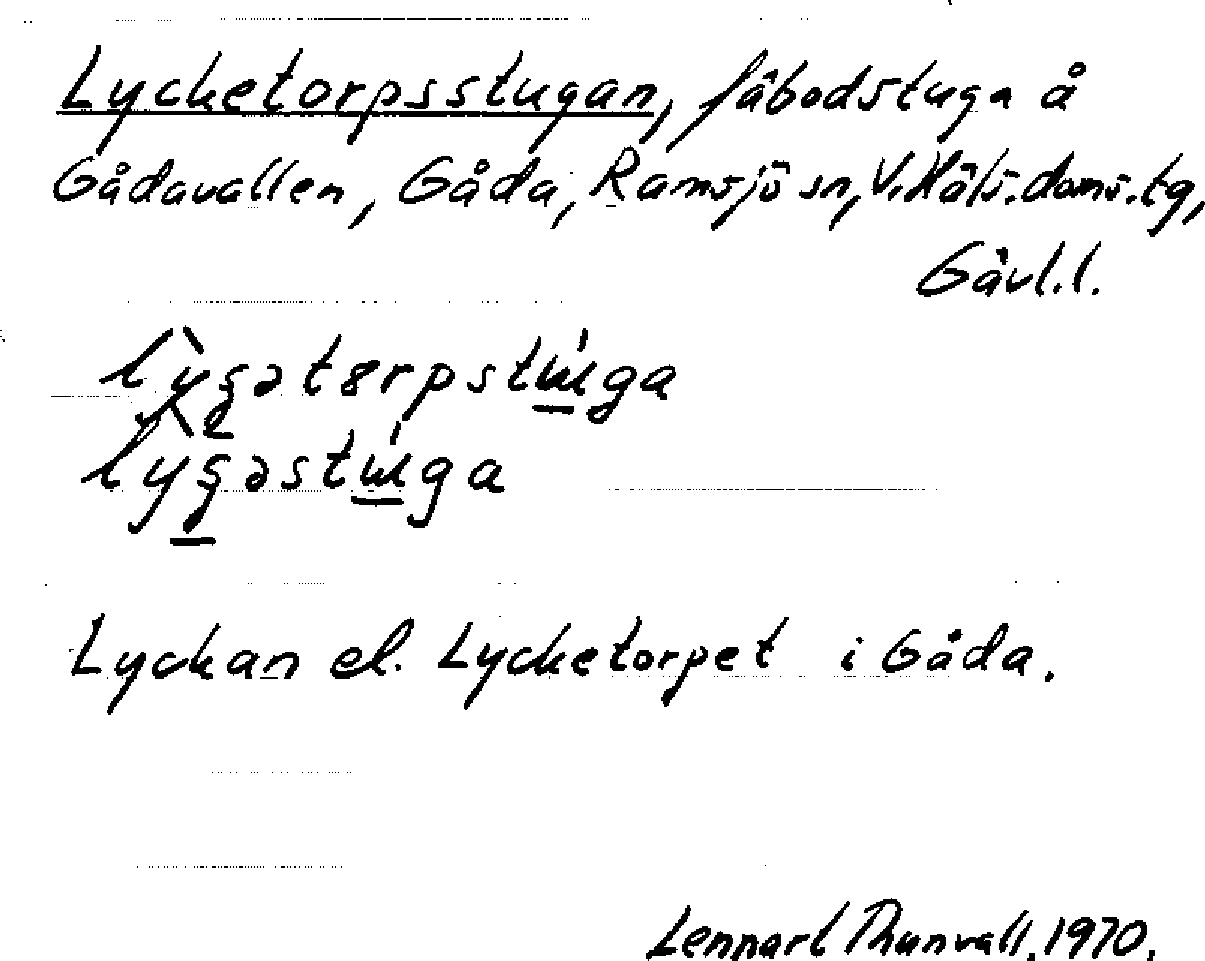 Lycketorpsstugan, fäbodstuga å
Gådavallen, Gåda, Ramsjö sn, V. Häls. doms. tg,
Gävl. l.
Lyckan el. Lycketorpet i Gåda.
Lennart Thunvall, 1970.